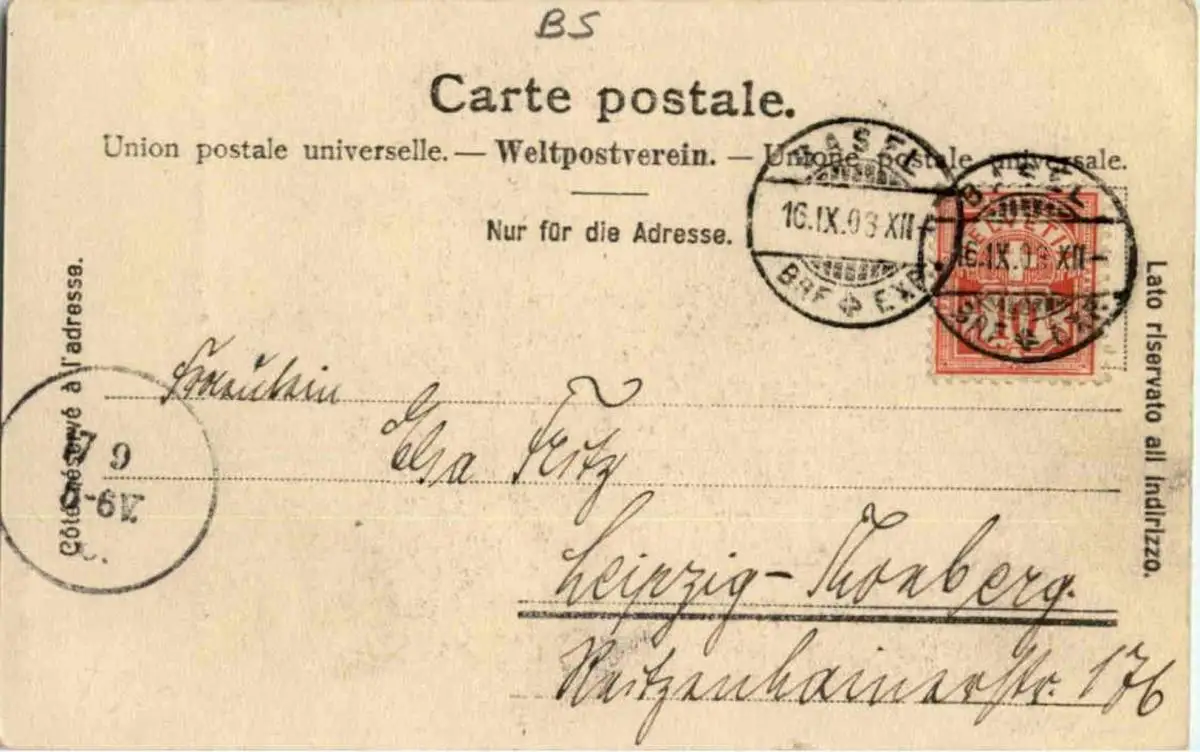 BS
Carte postale.
Union postale universelle. — Weltpostverein. — Unione postale universale.
Nur für die Adresse.
BASEL
16.IX.03 XII-
BRF EXP.
BASEL
16.IX.03 XII-
BRF EXP.
HELVETIA
10
Côté réservé à l'adresse.
Lato riservato all indirizzo.
17 9
5-6V.
Fräulein
Elsa Fritz
Leipzig-Thonberg.
Reitzenhainerstr. 176